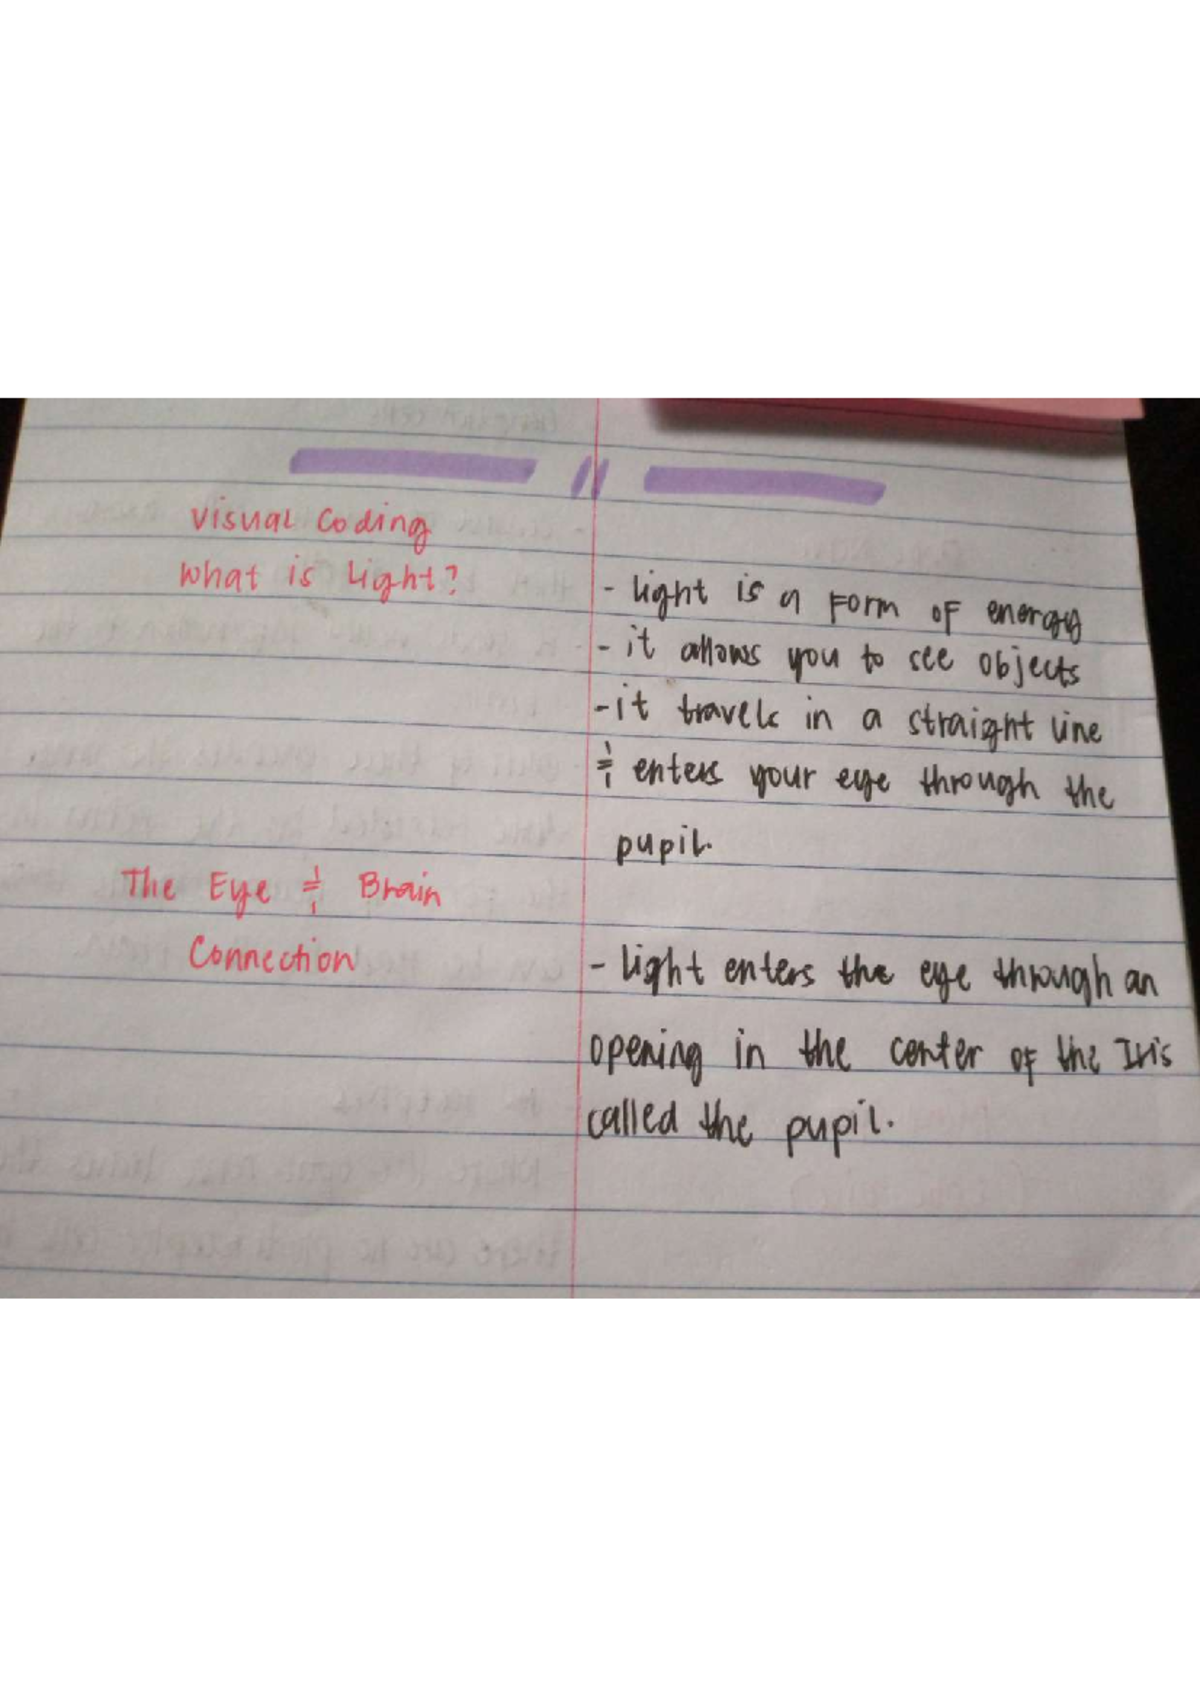 Visual Coding
What is Light?
- light is a form of energy
- it allows you to see objects
- it travels in a straight line
& enters your eye through the
pupil.
The Eye & Brain
Connection
- light enters the eye through an
opening in the center of the Iris
called the pupil.